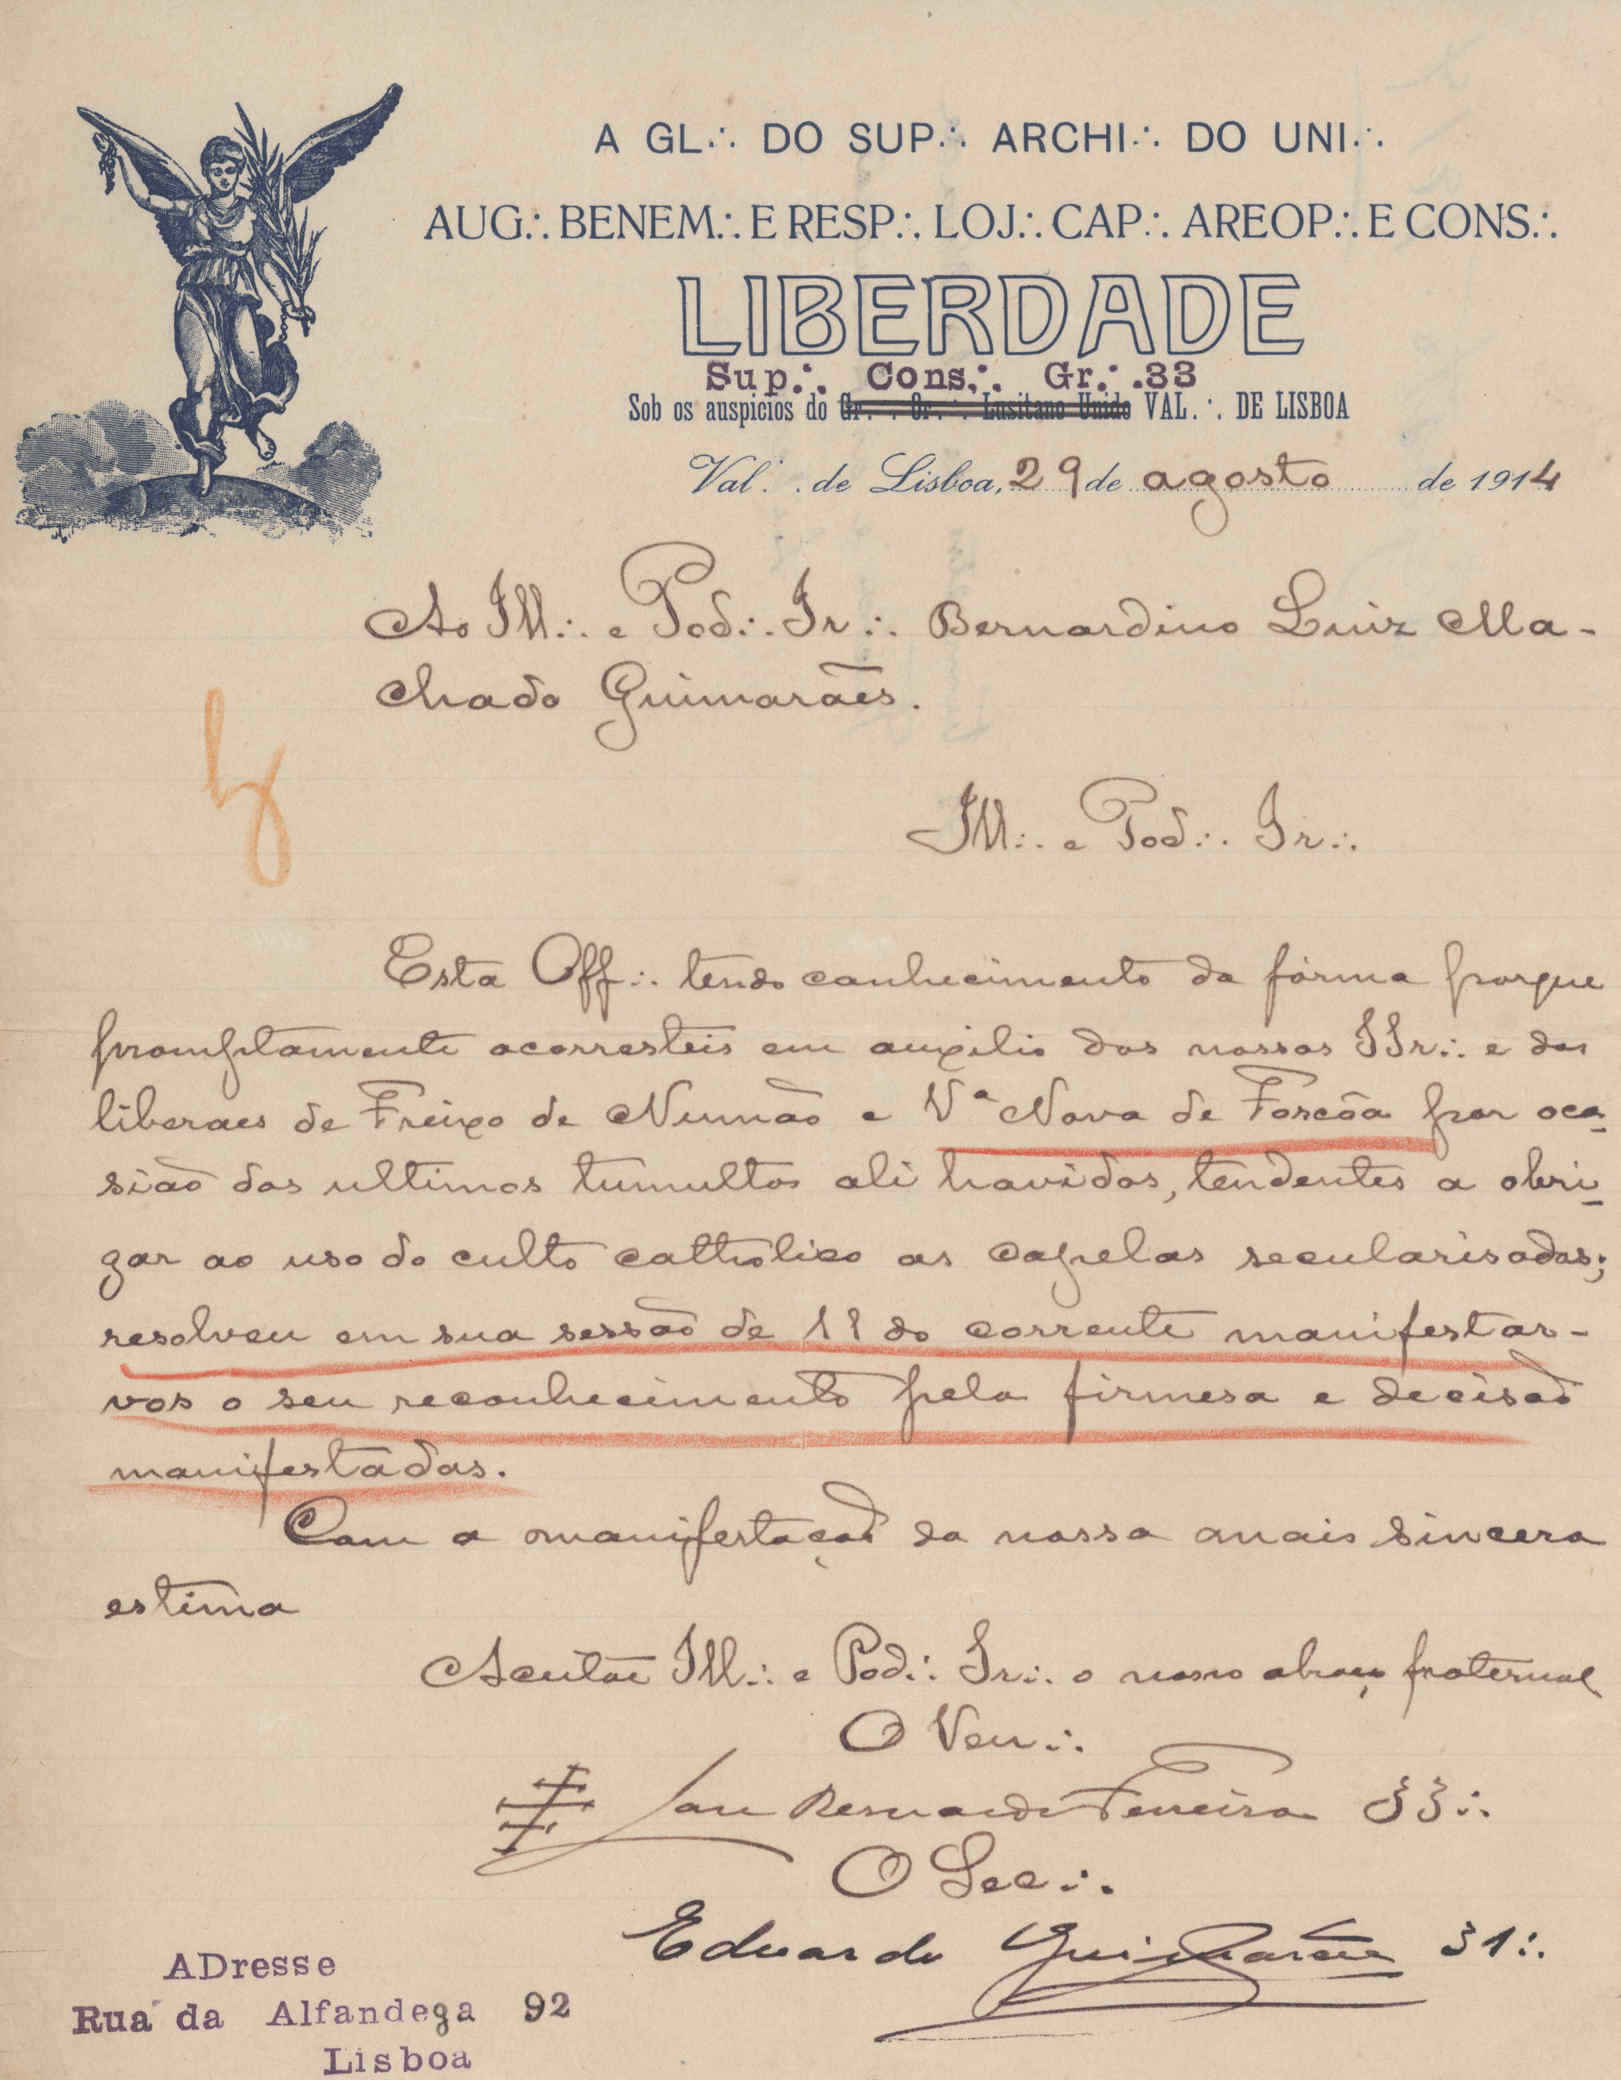 A GL∴ DO SUP∴ ARCHI∴ DO UNI∴
AUG∴ BENEM∴ E RESP∴ LOJ∴ CAP∴ AREOP∴ E CONS∴
LIBERDADE
Sup∴ Cons∴ Gr∴ 33
Sob os auspicios do Gr∴ Or∴ Lusitano Unido VAL∴ DE LISBOA
Val∴ de Lisboa, 29 de agosto de 1914
Ao Ill∴ e Pod∴ Ir∴ Bernardino Luiz Ma-
chado Guimarães.
Ill∴ e Pod∴ Ir∴
Esta Off∴ tendo conhecimento da fórma porque
promptamente acorresteis em auxilio dos nossos IIr∴ e dos
liberaes de Freixo de Numão e Vª Nova de Foscôa por oca-
sião dos ultimos tumultos ali havidos, tendentes a obri-
gar ao uso do culto catholico as capelas secularisadas;
resolveu em sua sessão de 11 do corrente manifestar-
vos o seu reconhecimento pela firmesa e decisão
manifestadas.
Com a manifestação da nossa mais sincera
estima
Aceitae Ill∴ e Pod∴ Ir∴ o nosso abraço fraternal
O Ven∴
Bernardo Ferreira 33∴
O Sec∴
Eduardo Guimarães 31∴
ADresse
Rua da Alfandega 92
Lisboa